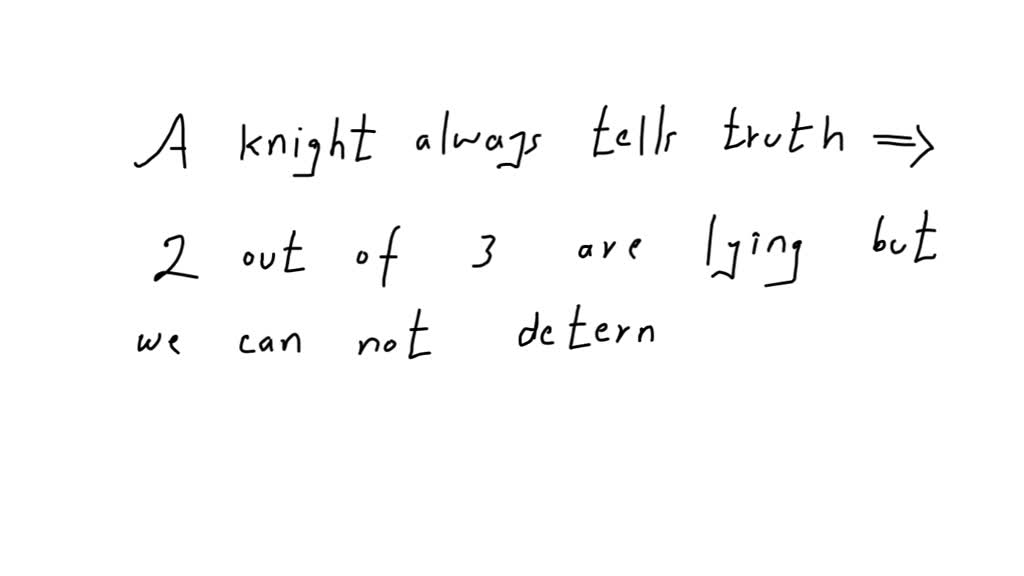 A knight always tells truth ⇒
2 out of 3 are lying but
we can not determ